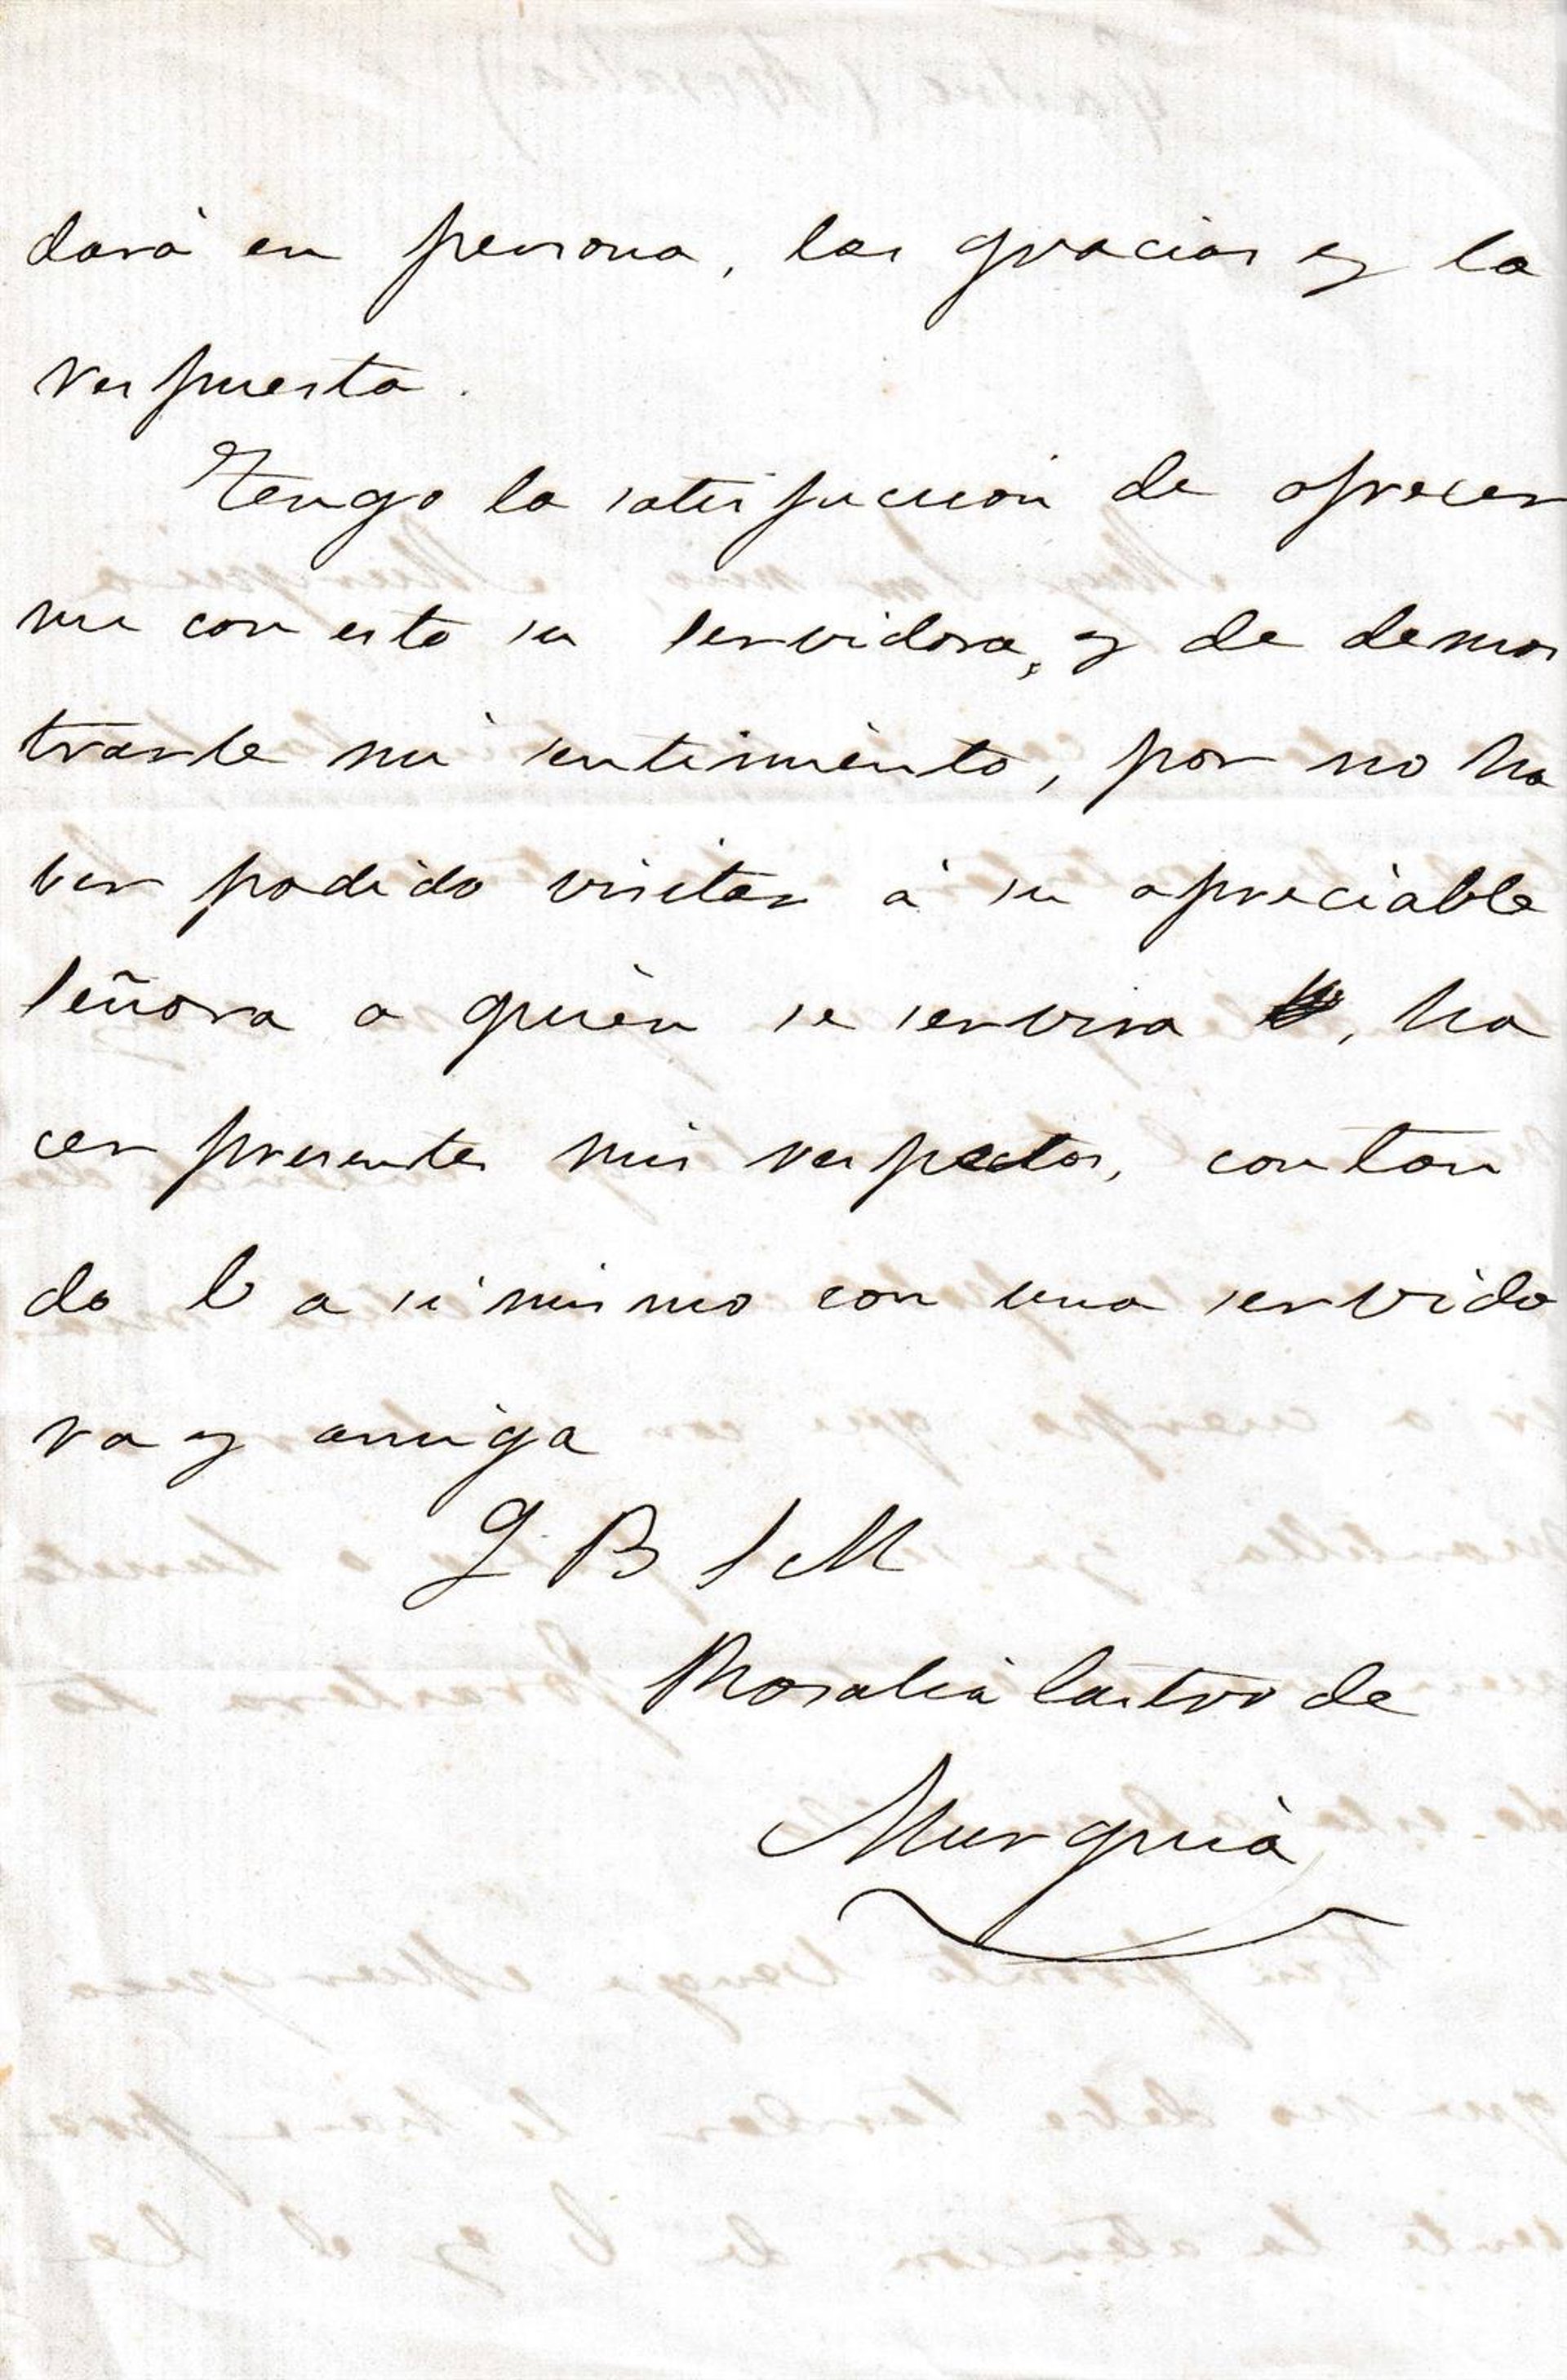 dará en persona, las gracias y la
respuesta.
Tengo la satisfaccion de ofrecer
me con esto su servidora, y de demos
trarle mi sentimiento, por no ha
ber podido visitar á su apreciable
Señora a quien se servira, ha
cer presentes mis respectos, contan
do V a si mismo con una servido
ra y amiga
Q. B S M
Rosalia Castro de
Murguia